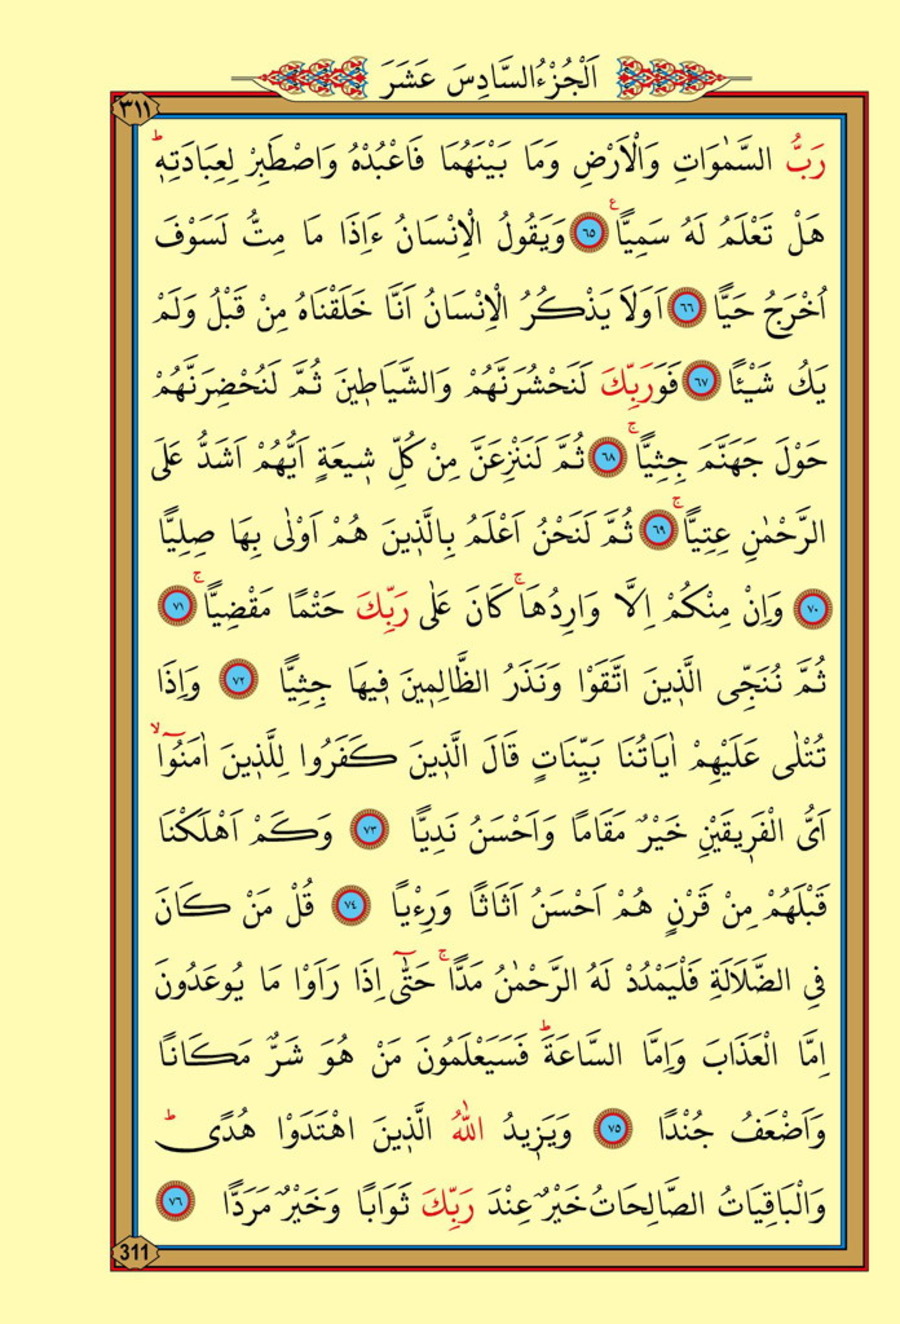 اَلْجُزْءُ السَّادِسَ عَشَرَ
٣١١
رَبُّ السَّمٰوَاتِ وَالْاَرْضِ وَمَا بَيْنَهُمَا فَاعْبُدْهُ وَاصْطَبِرْ لِعِبَادَتِه۪ۜ
هَلْ تَعْلَمُ لَهُ سَمِيًّاۚ ﴿٦٥﴾ وَيَقُولُ الْاِنْسَانُ ءَاِذَا مَا مِتُّ لَسَوْفَ
اُخْرَجُ حَيًّا ﴿٦٦﴾ اَوَلَا يَذْكُرُ الْاِنْسَانُ اَنَّا خَلَقْنَاهُ مِنْ قَبْلُ وَلَمْ
يَكُ شَيْـًٔا ﴿٦٧﴾ فَوَرَبِّكَ لَنَحْشُرَنَّهُمْ وَالشَّيَاط۪ينَ ثُمَّ لَنُحْضِرَنَّهُمْ
حَوْلَ جَهَنَّمَ جِثِيًّاۚ ﴿٦٨﴾ ثُمَّ لَنَنْزِعَنَّ مِنْ كُلِّ ش۪يعَةٍ اَيُّهُمْ اَشَدُّ عَلَى
الرَّحْمٰنِ عِتِيًّاۚ ﴿٦٩﴾ ثُمَّ لَنَحْنُ اَعْلَمُ بِالَّذ۪ينَ هُمْ اَوْلٰى بِهَا صِلِيًّا
﴿٧٠﴾ وَاِنْ مِنْكُمْ اِلَّا وَارِدُهَاۚ كَانَ عَلٰى رَبِّكَ حَتْمًا مَقْضِيًّاۚ ﴿٧١﴾
ثُمَّ نُنَجِّي الَّذ۪ينَ اتَّقَوْا وَنَذَرُ الظَّالِم۪ينَ ف۪يهَا جِثِيًّا ﴿٧٢﴾ وَاِذَا
تُتْلٰى عَلَيْهِمْ اٰيَاتُنَا بَيِّنَاتٍ قَالَ الَّذ۪ينَ كَفَرُوا لِلَّذ۪ينَ اٰمَنُٓواۙ
اَيُّ الْفَر۪يقَيْنِ خَيْرٌ مَقَامًا وَاَحْسَنُ نَدِيًّا ﴿٧٣﴾ وَكَمْ اَهْلَكْنَا
قَبْلَهُمْ مِنْ قَرْنٍ هُمْ اَحْسَنُ اَثَاثًا وَرِءْيًا ﴿٧٤﴾ قُلْ مَنْ كَانَ
فِي الضَّلَالَةِ فَلْيَمْدُدْ لَهُ الرَّحْمٰنُ مَدًّاۚ حَتّٰٓى اِذَا رَاَوْا مَا يُوعَدُونَ
اِمَّا الْعَذَابَ وَاِمَّا السَّاعَةَۜ فَسَيَعْلَمُونَ مَنْ هُوَ شَرٌّ مَكَانًا
وَاَضْعَفُ جُنْدًا ﴿٧٥﴾ وَيَز۪يدُ اللّٰهُ الَّذ۪ينَ اهْتَدَوْا هُدًىۜ
وَالْبَاقِيَاتُ الصَّالِحَاتُ خَيْرٌ عِنْدَ رَبِّكَ ثَوَابًا وَخَيْرٌ مَرَدًّا ﴿٧٦﴾
311